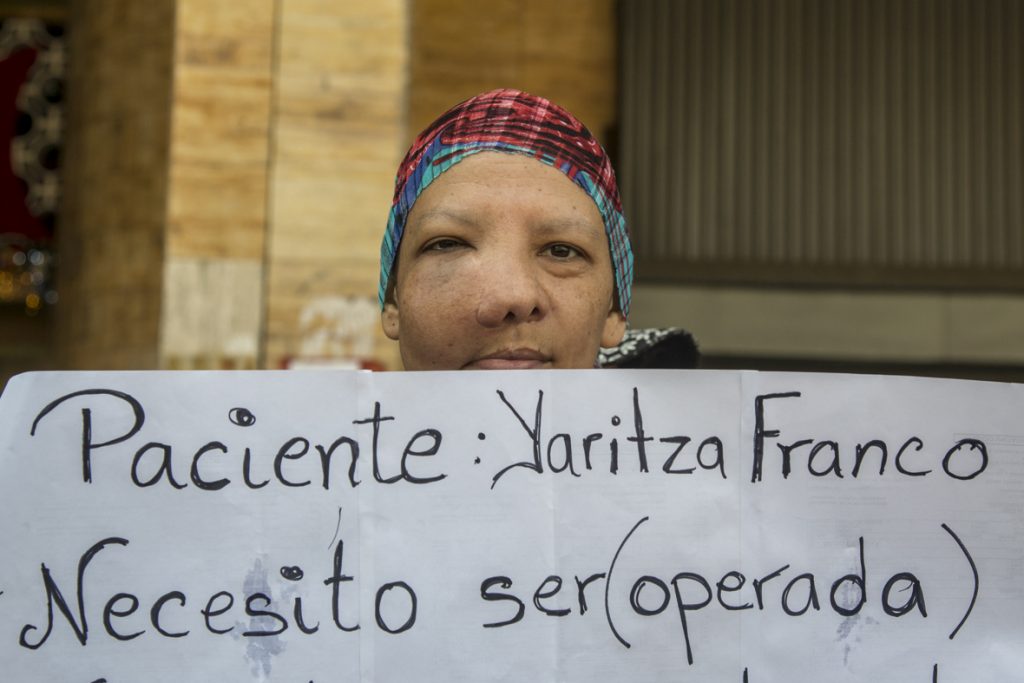 Paciente: Yaritza Franco
Necesito ser (operada)